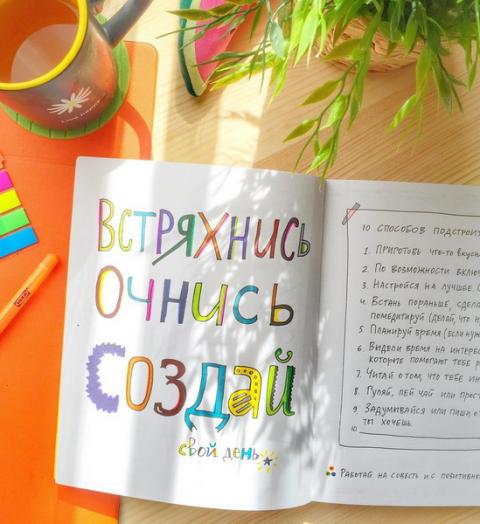 ВСТРЯХНИСЬ
ОЧНИСЬ
СОЗДАЙ
свой день
10 СПОСОБОВ ПОДСТРОИТ
1. ПРИГОТОВЬ ЧТО-ТО ВКУСН
2. ПО ВОЗМОЖНОСТИ ВКЛЮЧ
3. НАСТРОЙСЯ НА ЛУЧШЕЕ.
4. ВСТАНЬ ПОРАНЬШЕ, СДЕЛА
ПОМЕДИТИРУЙ (ДЕЛАЙ, ЧТО Н
5. ПЛАНИРУЙ ВРЕМЯ (ЕСЛИ НУЖ
6. ВЫДЕЛИ ВРЕМЯ НА ИНТЕРЕС
КОТОРЫЕ ПОМОГАЮТ ТЕБЕ Р
7. ЧИТАЙ О ТОМ, ЧТО ТЕБЕ ИН
8. ГУЛЯЙ, ПЕЙ ЧАЙ ИЛИ ПРОСТ
9. ЗАДУМЫВАЙСЯ ИЛИ ПИШИ О
ТЫ ХОЧЕШЬ
10
РАБОТАЙ НА СОВЕСТЬ И С ПОЗИТИВН